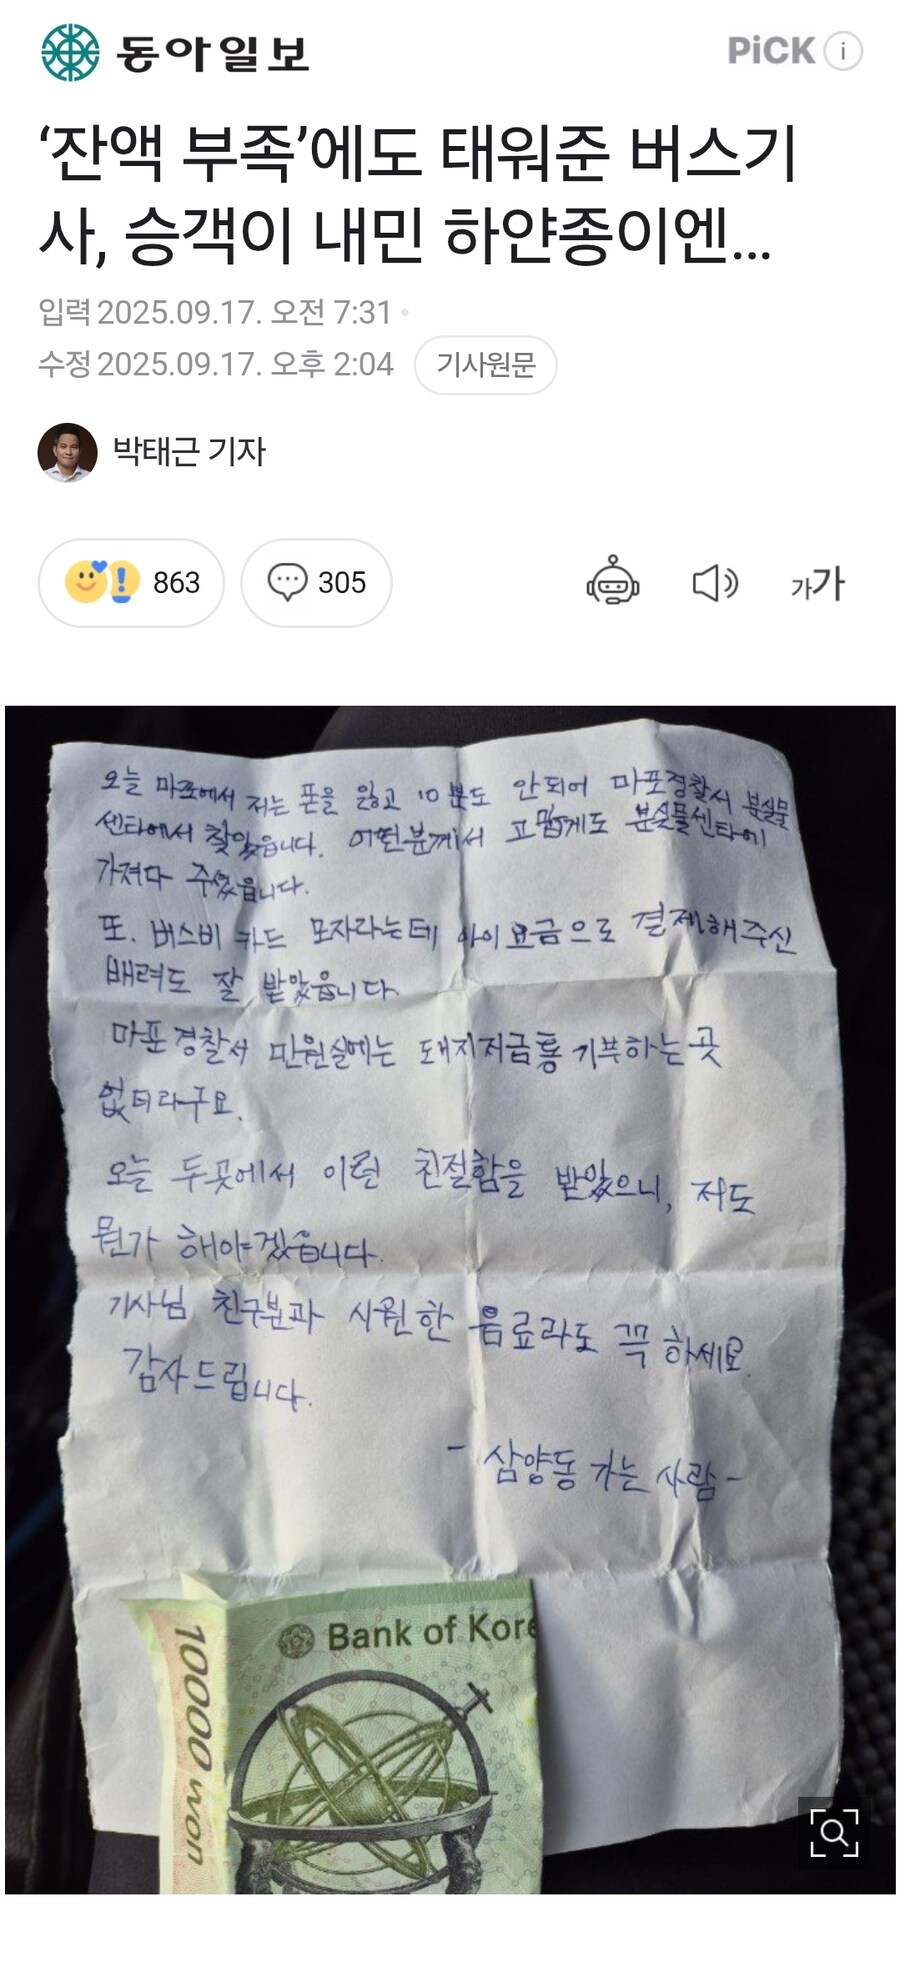 동아일보
PiCK i
‘잔액 부족’에도 태워준 버스기
사, 승객이 내민 하얀종이엔…
입력 2025.09.17. 오전 7:31
수정 2025.09.17. 오후 2:04 기사원문
박태근 기자
863 305 가가
오늘 마포에서 저는 폰을 잃고 10분도 안되어 마포경찰서 분실물
센타에서 찾았읍니다. 어떤분께서 고맙게도 분실물센타에
가져다 주셨읍니다.
또. 버스비 카드 모자라는데 아이요금으로 결제해주신
배려도 잘 받았읍니다.
마포경찰서 민원실에는 돼지저금통 기부하는곳
없더라구요.
오늘 두곳에서 이런 친절함을 받았으니, 저도
뭔가 해야겠읍니다.
기사님 친구분과 시원한 음료라도 꼭 하세요
감사드립니다.
- 삼양동 가는 사람 -
Bank of Kore
10000 won